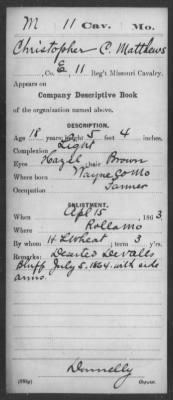 M 11 Cav. Mo.
Christopher C. Matthews
, Co. E, 11 Reg't Missouri Cavalry.
Appears on
Company Descriptive Book
of the organization named above.
DESCRIPTION.
Age 18 years; height 5 feet 4 inches.
Complexion Light
Eyes Hazel; hair Brown
Where born Wayne Co Mo
Occupation Farmer
ENLISTMENT.
When Apl 15, 1863
Where Rolla Mo
By whom H L Wheat; term 3 y'rs.
Remarks: Deserted Devalls
Bluff July 5. 1864. with side
arms.
Donnelly
Copyist.